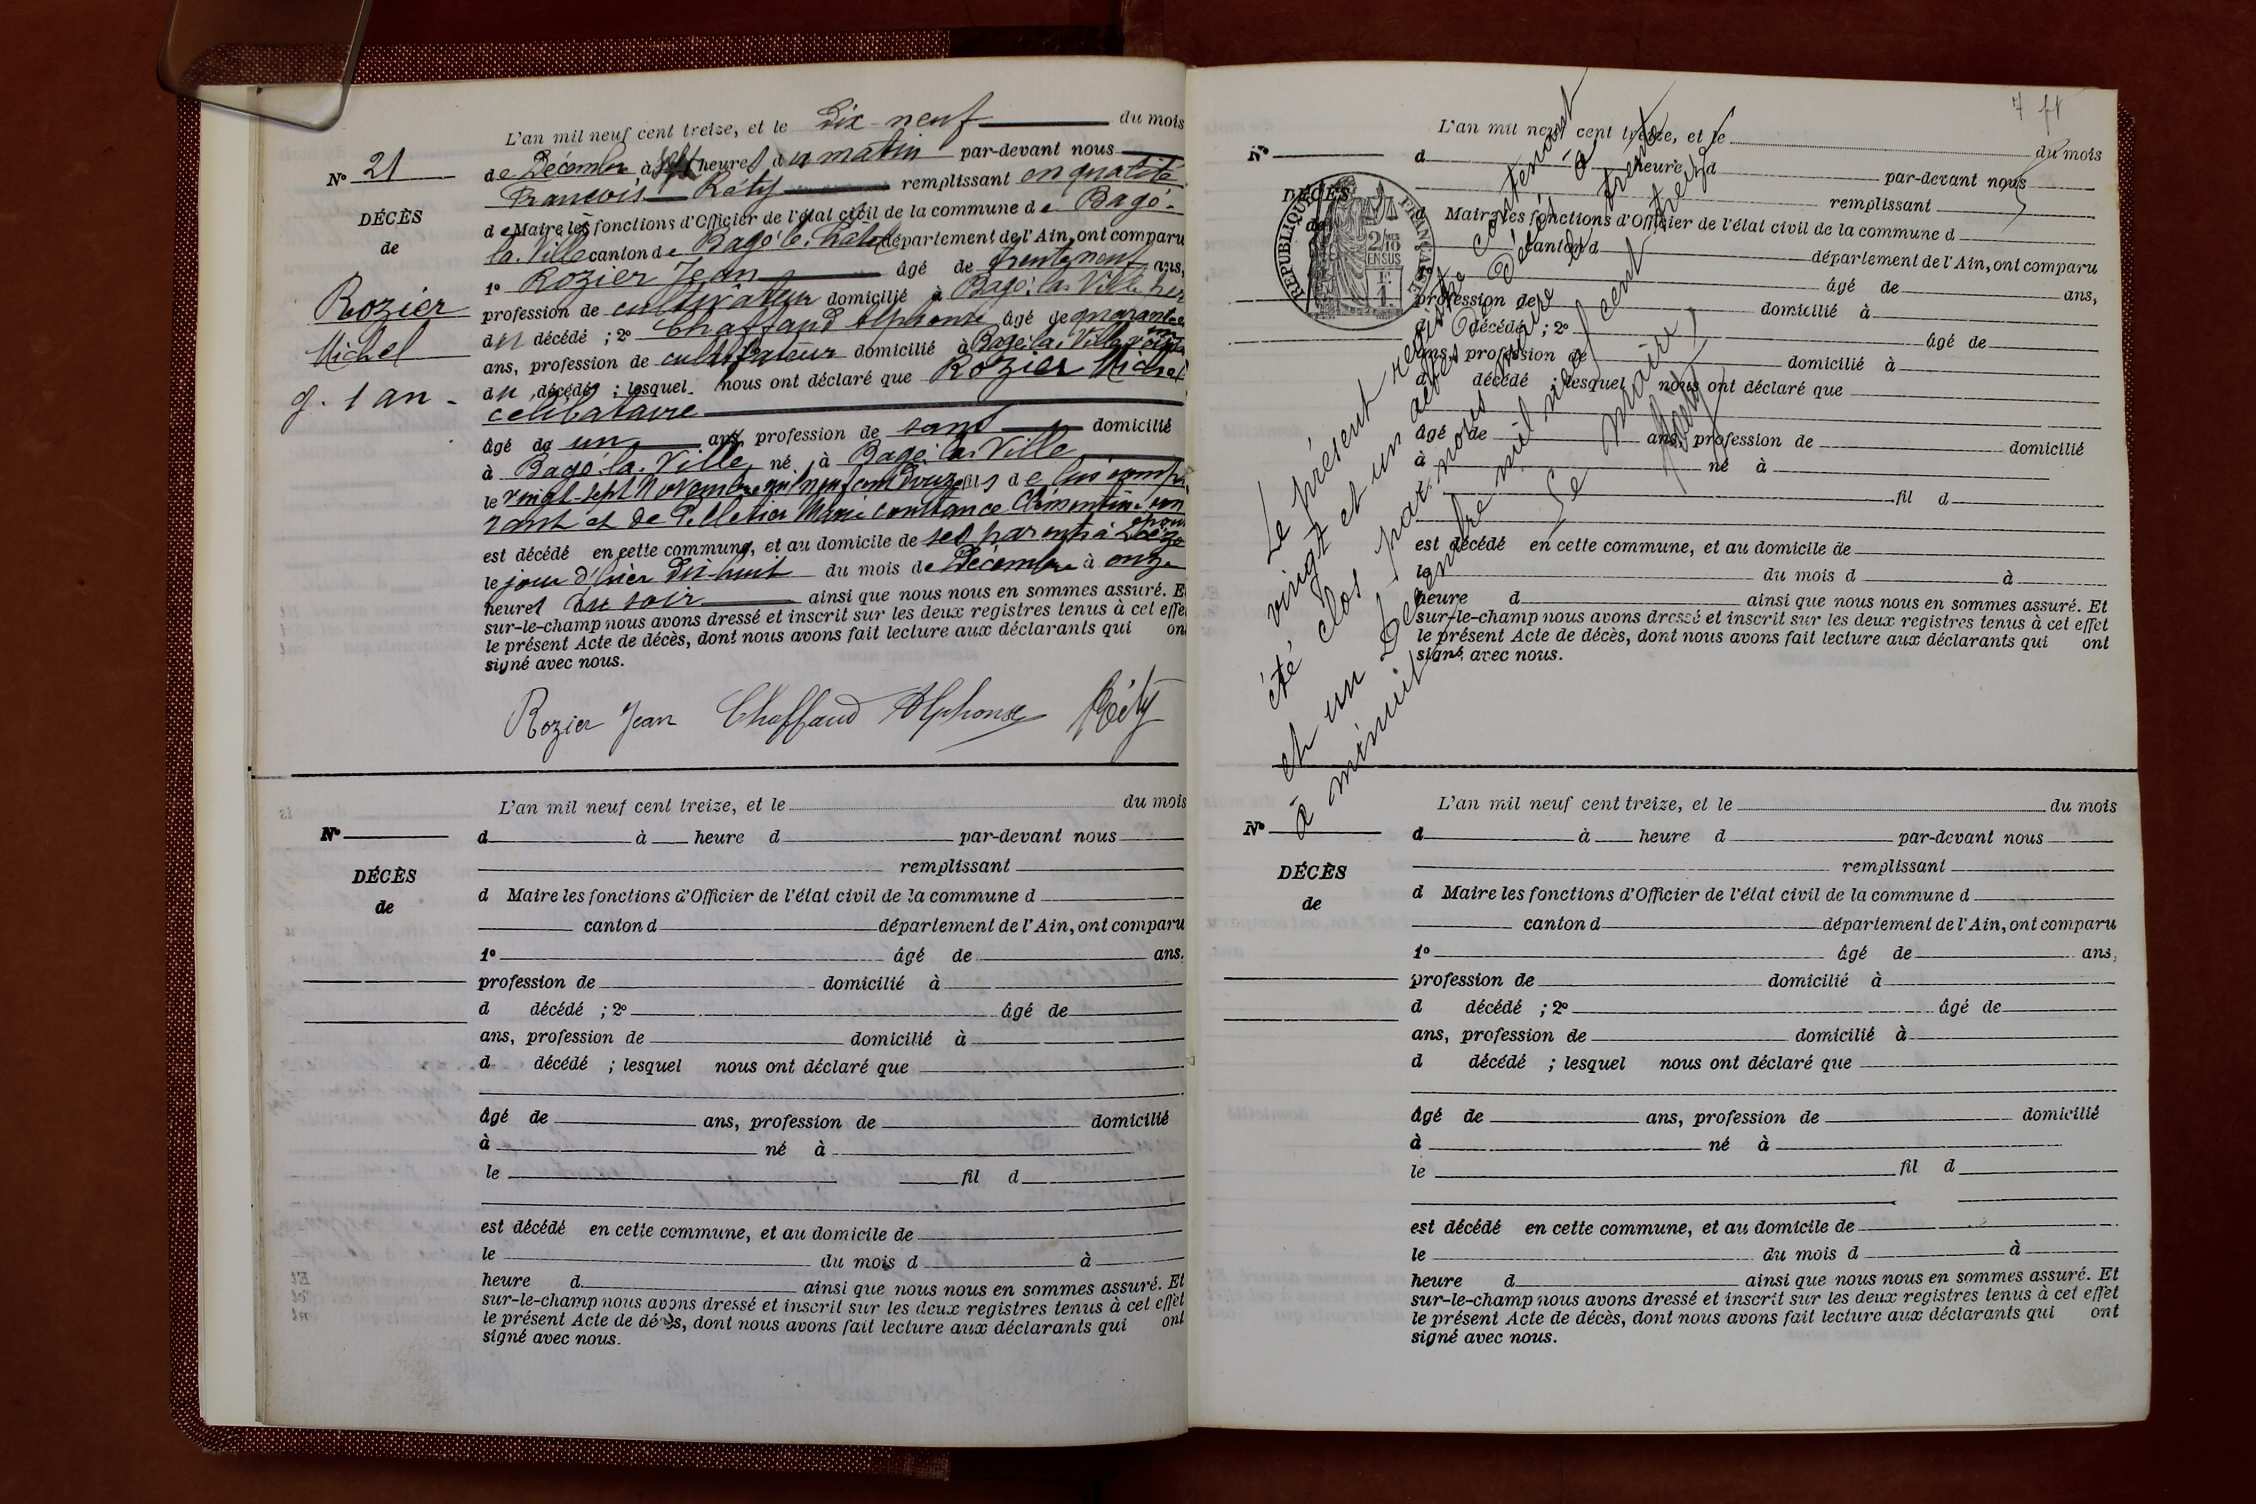 L'an mil neuf cent treize, et le Dix-neuf du mois
N° 21
de Décembre à sept heures du matin par-devant nous
François Réty remplissant en qualité
DÉCÈS
de Maire les fonctions d'Officier de l'état civil de la commune de Bagé-
de
la-Ville canton de Bagé-le-Châtel département de l'Ain, ont comparu
1° Rozier Jean âgé de trente neuf ans,
Rozier
profession de cultivateur domicilié à Bagé-la-Ville père
du décédé ; 2° Chaffaud Alphonse âgé de quarante
Michel
ans, profession de cultivateur domicilié à Bagé-la-Ville voisin
du décédé ; lesquels nous ont déclaré que Rozier Michel
g. 1 an -
célibataire
âgé de un an, profession de sans domicilié
à Bagé-la-Ville né à Bagé-la-Ville
le vingt-sept Novembre mil neuf cent douze fils de lui compa
rant et de Pelletier Marie Constance Clémentine son
épouse
est décédé en cette commune, et au domicile de ses parents à
le jour d'hier dix-huit du mois de Décembre à onze
heures du soir ainsi que nous nous en sommes assuré. Et
sur-le-champ nous avons dressé et inscrit sur les deux registres tenus à cet effet
le présent Acte de décès, dont nous avons fait lecture aux déclarants qui ont
signé avec nous.
Rozier Jean Chaffaud Alphonse Réty
L'an mil neuf cent treize, et le du mois
N°
d à heure d par-devant nous
remplissant
DÉCÈS
d Maire les fonctions d'Officier de l'état civil de la commune d
de
canton d département de l'Ain, ont comparu
1° âgé de ans.
profession de domicilié à
d décédé ; 2° âgé de
ans, profession de domicilié à
d décédé ; lesquel nous ont déclaré que
âgé de ans, profession de domicilié
à né à
le fil d
est décédé en cette commune, et au domicile de
le du mois d à
heure d ainsi que nous nous en sommes assuré. Et
sur-le-champ nous avons dressé et inscrit sur les deux registres tenus à cet effet
le présent Acte de décès, dont nous avons fait lecture aux déclarants qui ont
signé avec nous.
7
L'an mil neuf cent treize, et le du mois
N°
d à heure d par-devant nous
remplissant
DÉCÈS
d Maire les fonctions d'Officier de l'état civil de la commune d
de
canton d département de l'Ain, ont comparu
RÉPUBLIQUE FRANÇAISE
2/10
EN SUS
1 F.
âgé de ans,
profession de domicilié à
d décédé ; 2° âgé de
ans, profession de domicilié à
d décédé ; lesquel nous ont déclaré que
âgé de ans, profession de domicilié
à né à
le fil d
est décédé en cette commune, et au domicile de
le du mois d à
heure d ainsi que nous nous en sommes assuré. Et
sur-le-champ nous avons dressé et inscrit sur les deux registres tenus à cet effet
le présent Acte de décès, dont nous avons fait lecture aux déclarants qui ont
signé avec nous.
Le présent registre contenant
vingt et un actes de Décès a
été clos par nous maire le trente
et un Décembre mil neuf cent treize
à minuit
Le Maire,
Réty
L'an mil neuf cent treize, et le du mois
N°
d à heure d par-devant nous
remplissant
DÉCÈS
d Maire les fonctions d'Officier de l'état civil de la commune d
de
canton d département de l'Ain, ont comparu
1° âgé de ans,
profession de domicilié à
d décédé ; 2° âgé de
ans, profession de domicilié à
d décédé ; lesquel nous ont déclaré que
âgé de ans, profession de domicilié
à né à
le fil d
est décédé en cette commune, et au domicile de
le du mois d à
heure d ainsi que nous nous en sommes assuré. Et
sur-le-champ nous avons dressé et inscrit sur les deux registres tenus à cet effet
le présent Acte de décès, dont nous avons fait lecture aux déclarants qui ont
signé avec nous.